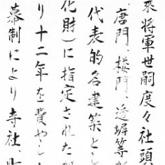 来将軍世嗣度々社頭
唐門、楼門、透塀等
代表的な建築とし
化財に指定された
り十二年を費やし
幕制により寺社